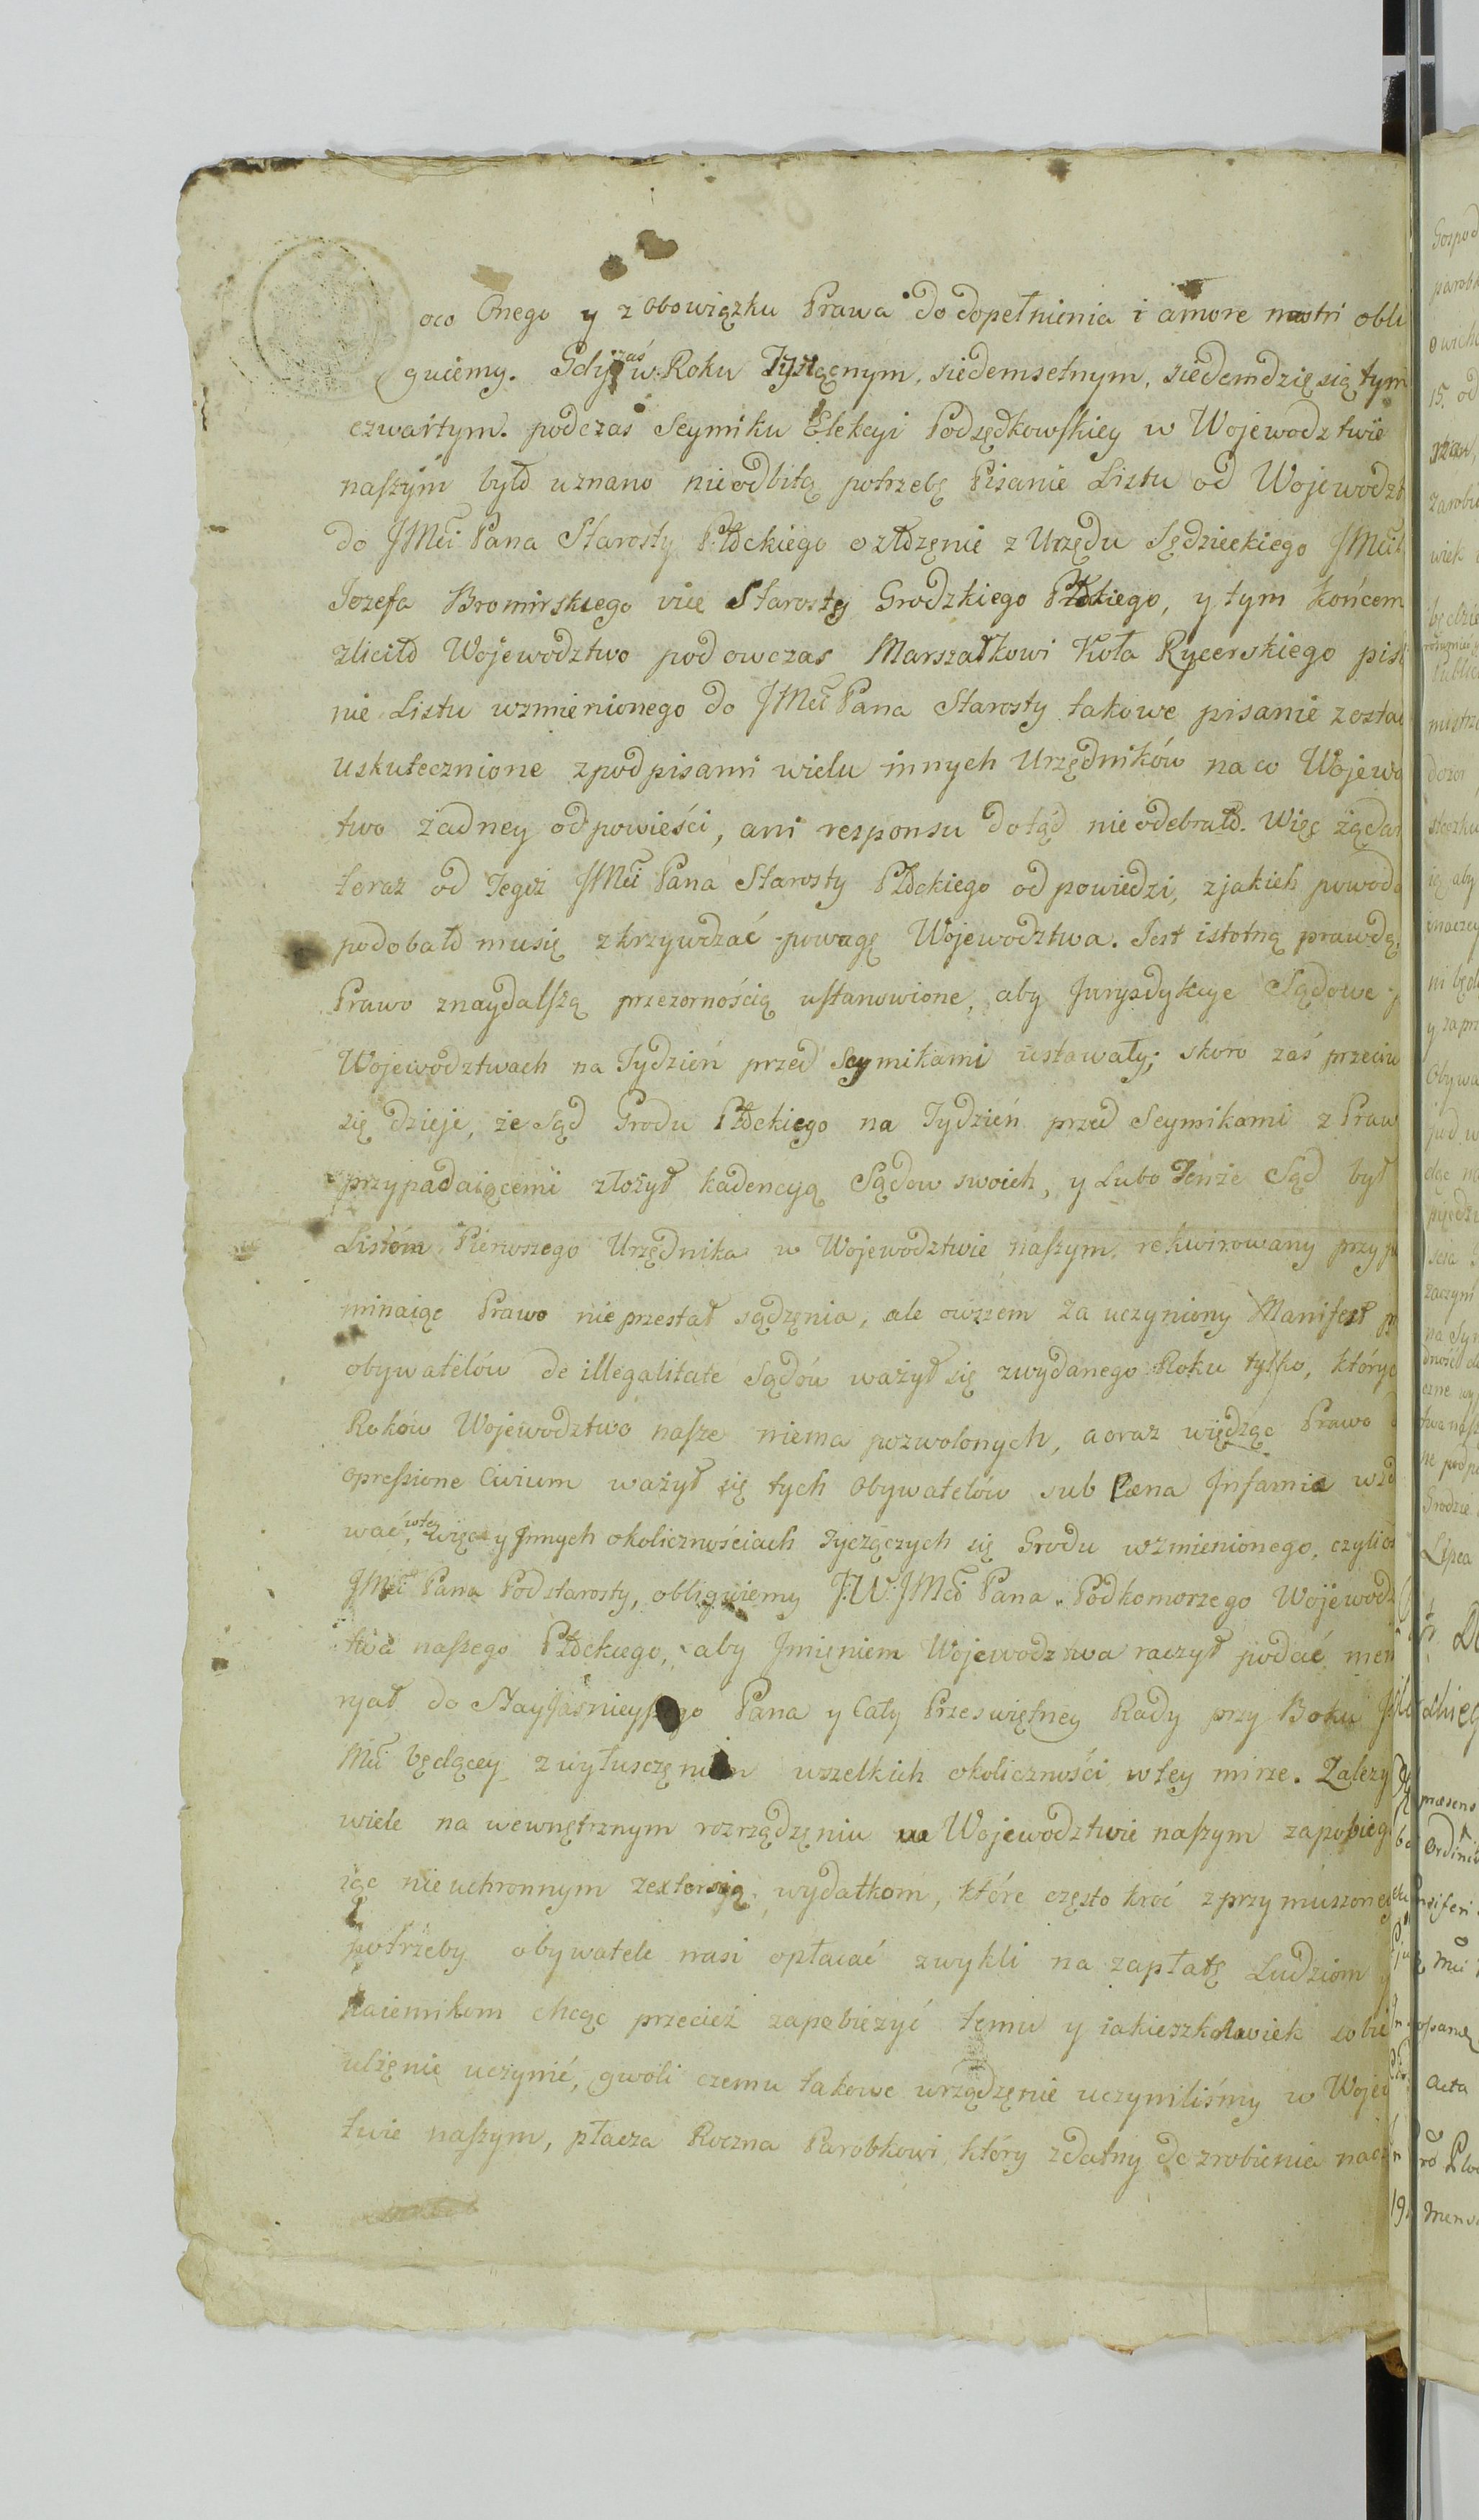 oco Onego y z obowiązku Prawa do dopełnienia i amore nostri obli
guiemy. Gdy zaś w Roku Tysiącnym, siedemsetnym, siedemdzięsiątym
czwartym. podczas Seymiku Elekcyi Podsędkowskiey w Wojewodztwie
naszym było uznano nieodbitą potrzebę Pisanie Listu od Wojewodzt
do JMci Pana Starosty Płockiego o złożęnie z Urzędu Sędzieckiego JMci
Jozefa Bromirskiego vice Starostę Grodzkiego Płockiego, y tym końcem
zliciło Wojewodztwo podowczas Marszałkowi Koła Rycerskiego pisa
nie Listu wzmienionego do JMci Pana Starosty takowe pisanie zostało
uskutecznione z podpisami wielu innych Urzędników na co Wojewo
two żadney odpowieści, ani responsu dotąd nie odebrało. Więc żąda
teraz od Tegoż JMci Pana Starosty Płockiego odpowiedzi, z jakich powodo
podobało mu się zkrzywdzać powagę Wojewodztwa. Jest istotną prawdą,
Prawo znaydalszą przezornością ustanowione, aby Jurysdykcye Sądowe
Wojewodztwach na Tydzień przed Seymikami ustawały; skoro zaś przeciw
się dzieje, że Sąd Grodu Płockiego na Tydzień przed Seymikami z Praw
przypadaiącemi złożył kadencyą Sądow swoich, y Lubo Tenże Sąd był
Listem Pierwszego Urzędnika w Wojewodztwie naszym, rekwirowany przypo
minaiąc Prawo nie przestał sądzęnia, ale owszem za uczyniony Manifest
obywatelów de illegalitate Sądów ważył się zwydanego Roku tylko, któryc
Roków Wojewodztwo nasze niema pozwolonych, a oraz więdząc Prawo
opressione Civium ważył się tych Obywatelów sub Pæna Infamiæ
wać, w tey więc y Innych okolicznościach Tyczączych się Grodu wzmienionego, czylić
JMci Pana Podstarosty, obliguiemy J.W. JMci Pana Podkomorzego Wojewodz
twa naszego Płockiego, aby Jmięniem Wojewodztwa raczył podać mem
ryał do Nayjaśnieyszego Pana y Cały Przeświętney Rady przy Boku
Mci będącey z wyłuszczęniem wszelkich okoliczności w tey mirze. Zależy
wiele na wewnętrznym rozrządzęniu w Wojewodztwie naszym zapobiega
iąc nieuchronnym z extorsyą wydatkom, które często kroć z przymuszoney
potrzeby obywatele nasi opłacać zwykli na zapłatę Ludziom y
naiemikom chcąc przecież zapobieżyć temu y iakieszkolwiek sobie
ulżęnię uczynić, gwoli czemu takowe urządzęnie uczyniliśmy w Wojew
twie naszym, płacza Roczna Parobkowi który zdatny do zrobienia nac